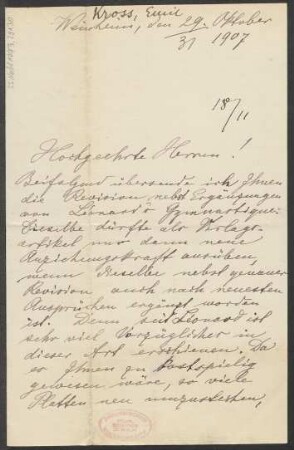 Kross, Emil
Weinheim, den 29. Oktober
31 1907
18/11
Hochgeehrte Herren!
Beifolgend übersende ich Ihnen
die Revision nebst Ergänzungen
von Léonard's Gymnastique.
Dieselbe dürfte als Verlags-
artikel nur dann neue
Anziehungskraft ausüben,
wenn dieselbe nebst genauer
Revision auch nach neuesten
Ansprüchen ergänzt worden
ist. Denn seit Léonard ist
sehr viel Vorzüglicher in
dieser Art erschienen. Da
er Ihnen zu kostspielig
gewesen wäre, so viele
Platten neu umzustechen,